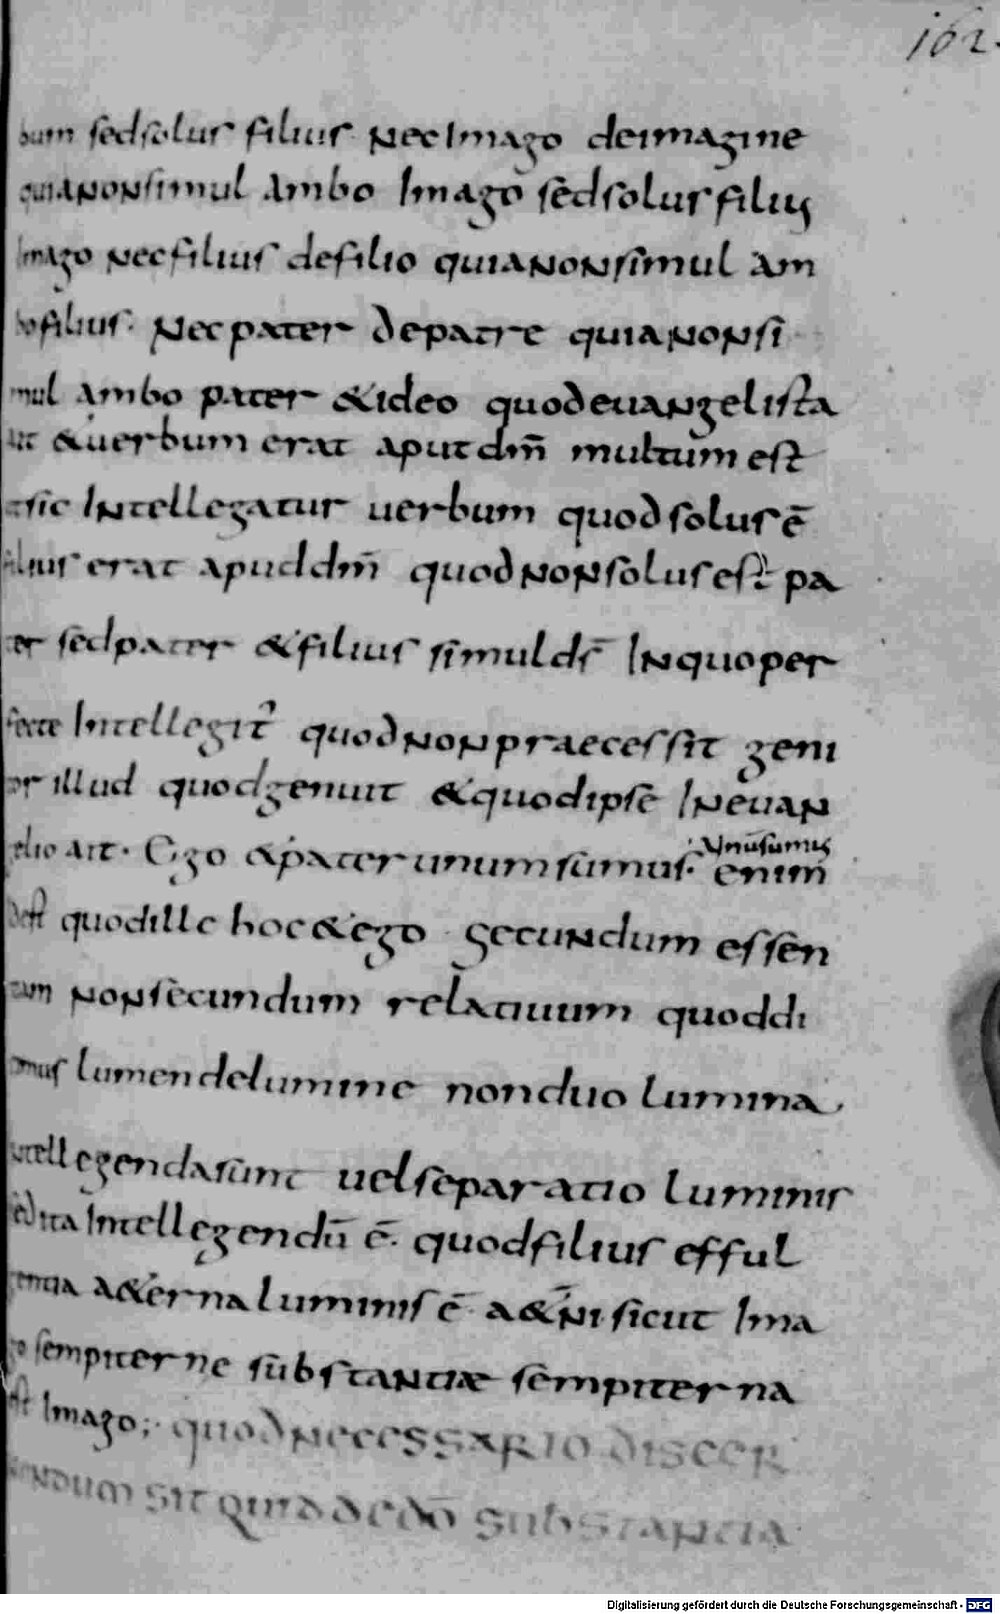 162.
bum sedsolus filius necimago deimagine
quianonsimul ambo imago sedsolusfilius
imago necfilius defilio quianonsimul am
bofilius. necpater depatre quianonsi
mul ambo pater &ideo quodeuangelista
ait &uerbum erat aput dm̄ multum est
sic intellegatur uerbum quodsolus ē
filius erat apud dm̄ quodnonsolusest pa
ter sedpater &filius simulds̄ inquoper
fecte intellegit̃ quodnonpraecessit geni
tor illud quodgenuit &quodipse ineuan
gelio ait. Ego &pater unumsumus. enim
unūsumus
idest quodille hoc&ego secundum essen
tiam nonsecundum relatiuum quoddi
cimus lumendelumine nonduo lumina.
intellegendasunt uelseparatio luminis
sedita intellegendū ē. quodfilius efful
gentia a&ernaluminis ē a&̄ni sicut ima
go sempiterne substantiæ sempiterna
est imago;. quodnecessario discer
nendum sit quidadedō substantia
Digitalisierung gefördert durch die Deutsche Forschungsgemeinschaft - DFG